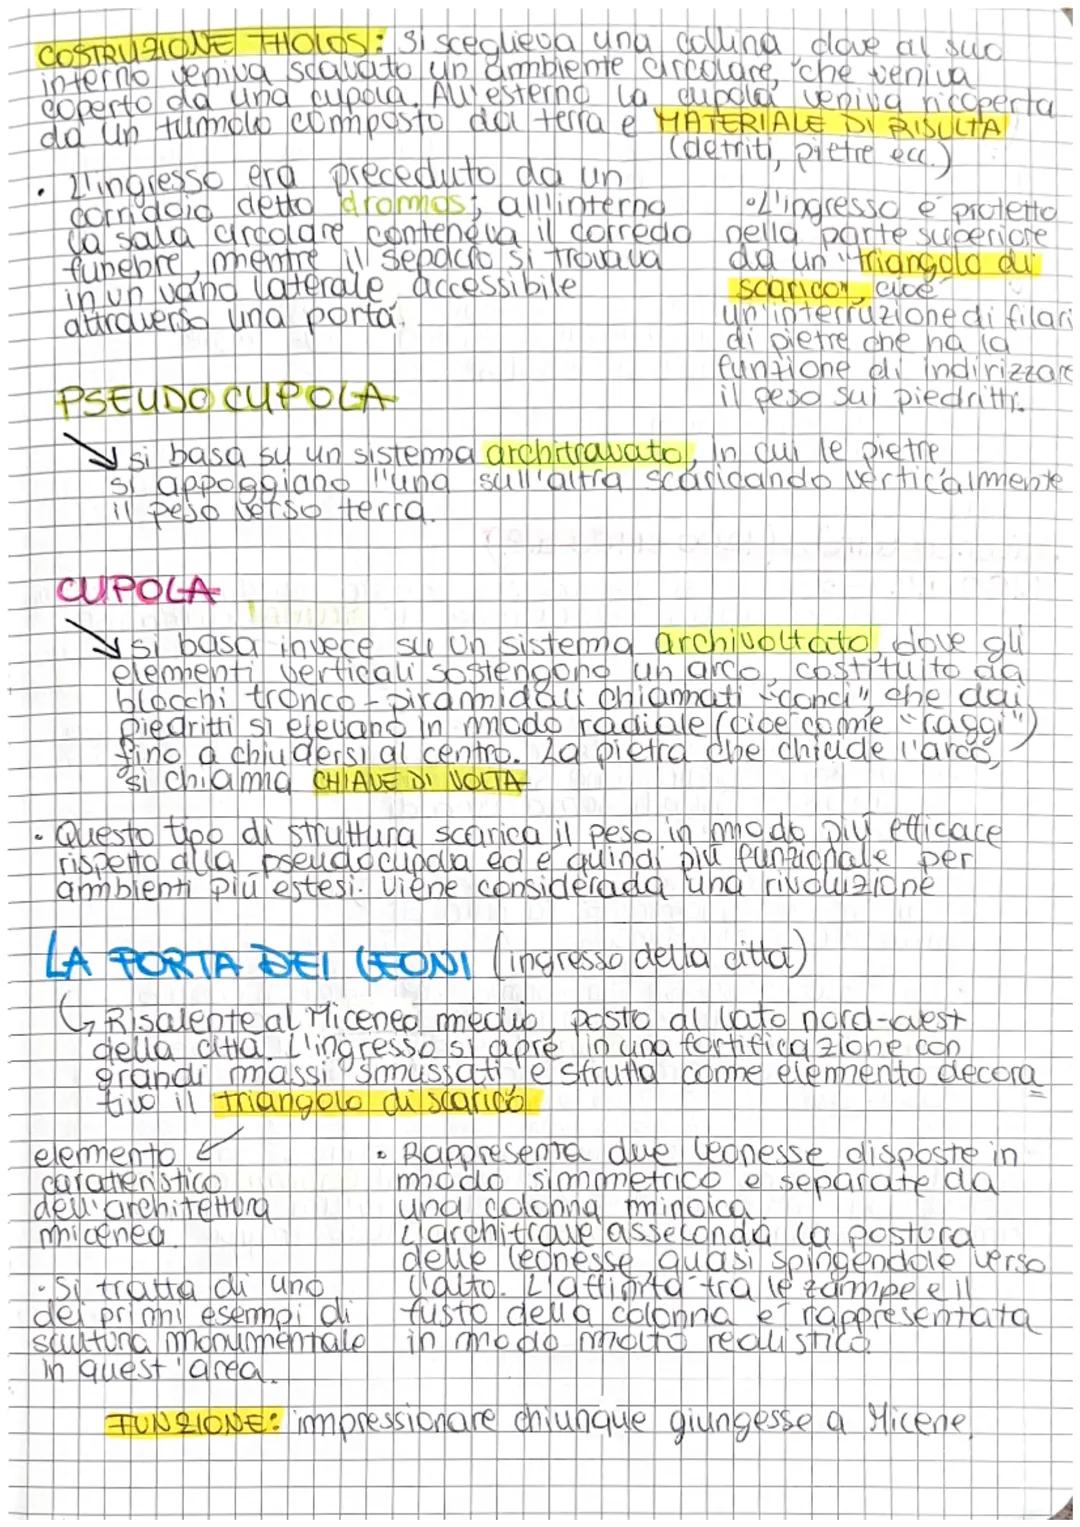 COSTRUZIONE THOLOS: si sceglieva una collina dove al suo
interno veniva scavato un ambiente circolare, che veniva
coperto da una cupola. All'esterno la cupola veniva ricoperta
da un tumolo composto da terra e MATERIALE DI RISULTA
(detriti, pietre ecc.)
• L'ingresso era preceduto da un
corridoio detto dromos; all'interno
la sala circolare conteneva il corredo
funebre, mentre il sepolcro si trovava
in un vano laterale accessibile
attraverso una porta.
• L'ingresso è protetto
nella parte superiore
da un "triangolo di
scarico", cioè
un'interruzione di filari
di pietre che ha la
funzione di indirizzare
il peso sui piedritti.
PSEUDO CUPOLA
si basa su un sistema architravato, in cui le pietre
si appoggiano l'una sull'altra scaricando verticalmente
il peso verso terra.
CUPOLA
si basa invece su un sistema archivoltato, dove gli
elementi verticali sostengono un arco, costituito da
blocchi tronco-piramidali chiamati "conci", che dai
piedritti si elevano in modo radiale (cioè come "raggi")
fino a chiudersi al centro. La pietra che chiude l'arco,
si chiama CHIAVE DI VOLTA
• Questo tipo di struttura scarica il peso in modo più efficace
rispetto alla pseudocupola ed è quindi più funzionale per
ambienti più estesi. Viene considerada una rivoluzione
LA PORTA DEI LEONI (ingresso della città)
Risalente al Miceneo medio, posto al lato nord-ovest
della città. L'ingresso si apre in una fortificazione con
grandi massi smussati e sfrutta come elemento decora
tivo il triangolo di scarico
elemento
caratteristico
dell'architettura
micenea.
• Si tratta di uno
dei primi esempi di
scultura monumentale
in quest'area.
• Rappresenta due leonesse disposte in
modo simmetrico e separate da
una colonna minoica.
L'architrave asseconda la postura
delle leonesse, quasi spingendole verso
l'alto. L'affinità tra le zampe e il
fusto della colonna è rappresentata
in modo molto realistico.
FUNZIONE: impressionare chiunque giungesse a Micene.